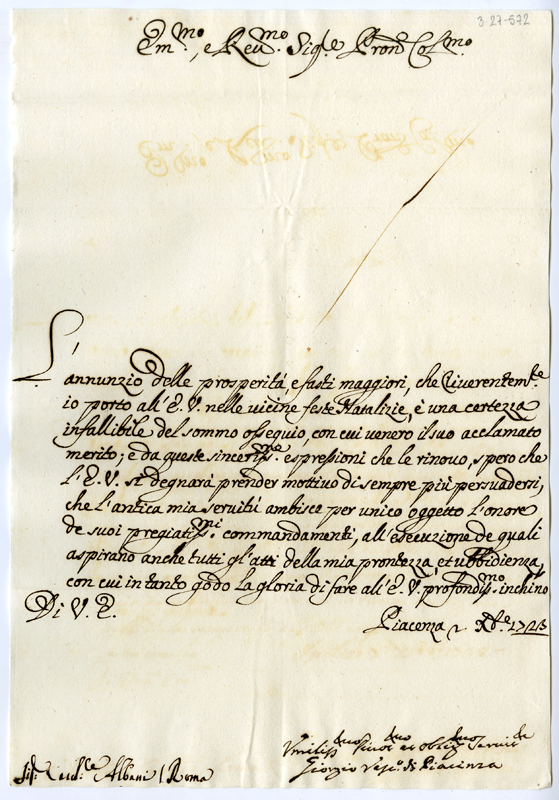 3-27-572
Em.mo, e Reu.mo Sig.re Pron.e Col.mo
L'annunzio delle prosperità, e fasti maggiori, che riuerentem.te
io porto all'E. V. nelle uicine feste Natalizie, è una certezza
infallibile del sommo ossequio, con cui uenero il suo acclamato
merito; e da queste sinceriss.me espressioni che le rinouo, spero che
l'E. V. si degnarà prender mottiuo di sempre più persuadersi,
che l'antica mia seruitù ambisce per unico oggetto l'onore
de suoi pregiatiss.mi commandamenti, all'esecuzione de quali
aspirano anche tutti gl'atti della mia prontezza, et ubbidienza,
con cui in tanto godo la gloria di fare all'E. V. profondiss.mo inchino
Di V. E.
Piacenza 2 Xb.e 1723
Sig: Card.le Albani / Roma
Vmiliss diuo et oblig Seruit
Giorgio Vesc.o di Piacenza